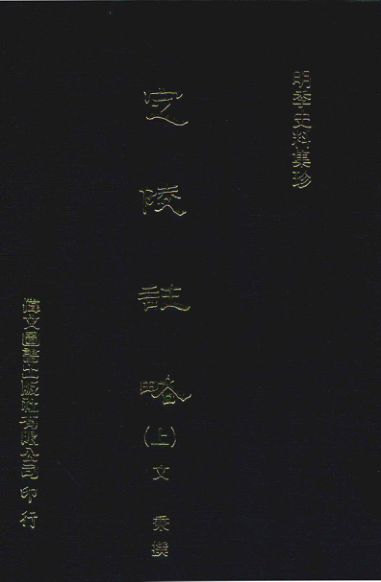 明季史料集珍
定陵註略
(上)
文秉撰
偉文圖書出版社有限公司印行